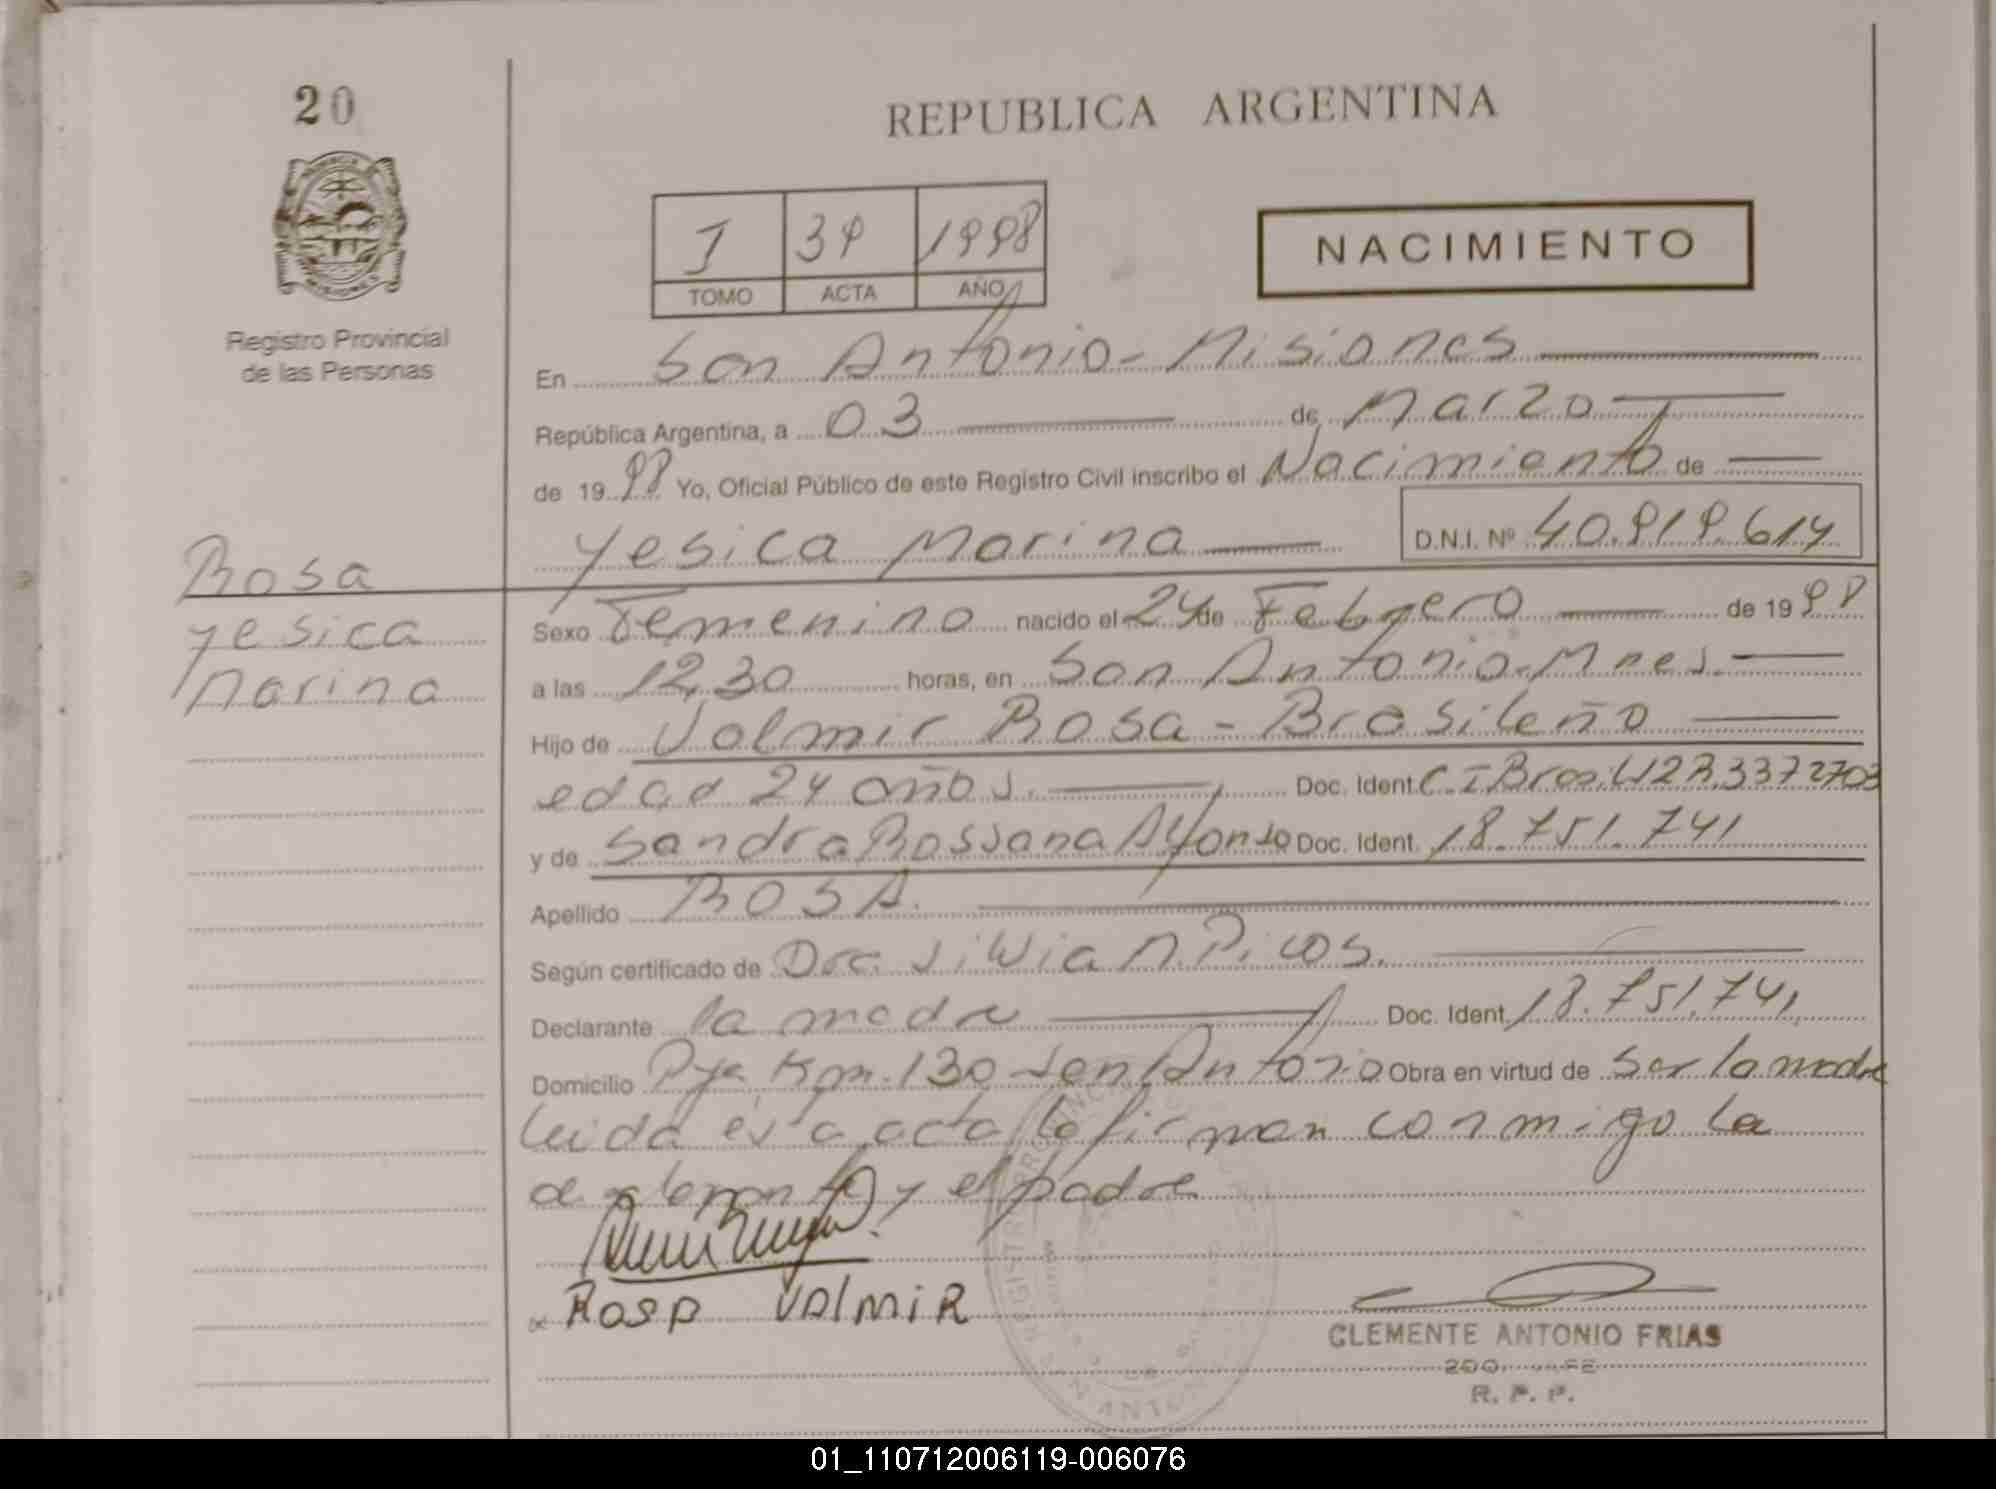 20
REPUBLICA ARGENTINA
I 39 1998
TOMO ACTA AÑO
NACIMIENTO
Registro Provincial
de las Personas
En San Antonio - Misiones
República Argentina, a 03 de Marzo
de 1998 Yo, Oficial Público de este Registro Civil inscribo el Nacimiento de
Yesica Marina D.N.I. Nº 40.919.614
Rosa
Yesica
Marina
Sexo Femenino nacido el 24 de Febrero de 1998
a las 12,30 horas, en San Antonio - Mnes.
Hijo de Valmir Rosa - Brasileño
edad 24 años. Doc. Ident C.I Brasil 12R.3372703
y de Sandra Rossana Alfonso Doc. Ident. 18.751.741
Apellido ROSA.
Según certificado de Dra. Silvia N. Picos.
Declarante la madre Doc. Ident. 18.751.741,
Domicilio Pje Km. 130 San Antonio Obra en virtud de Ser la madre
Leida esta acta la firman conmigo la
declarante y el padre
Rosa Valmir
CLEMENTE ANTONIO FRIAS
R. P. P.
01_110712006119-006076